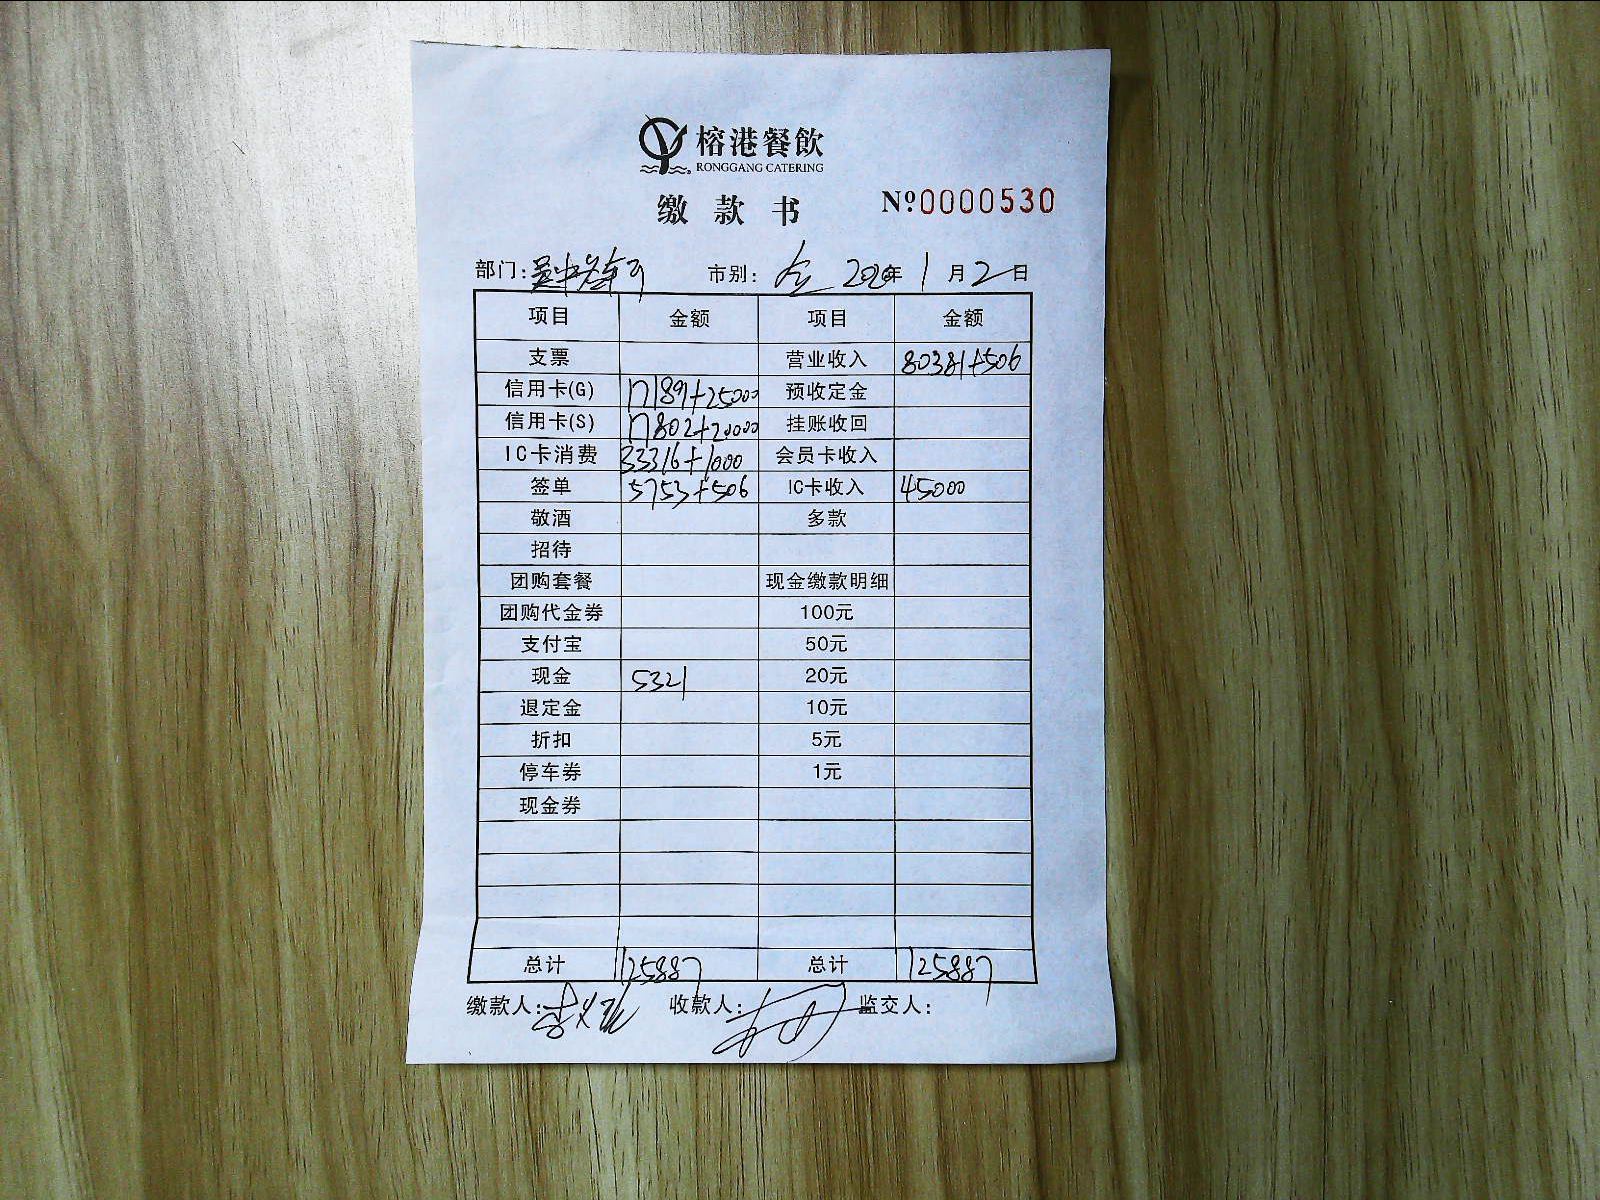 榕港餐飲
RONGGANG CATERING
缴款书 №0000530
部门: 市别: 全 2020年 1月2日
项目 金额 项目 金额
支票 营业收入 80381+506
信用卡(G) 17189+25000 预收定金
信用卡(S) 17802+20000 挂账收回
IC卡消费 33316+1000 会员卡收入
签单 5753+506 IC卡收入 45000
敬酒 多款
招待
团购套餐 现金缴款明细
团购代金券 100元
支付宝 50元
现金 5321 20元
退定金 10元
折扣 5元
停车券 1元
现金券
总计 125887 总计 125887
缴款人: 收款人: 监交人: